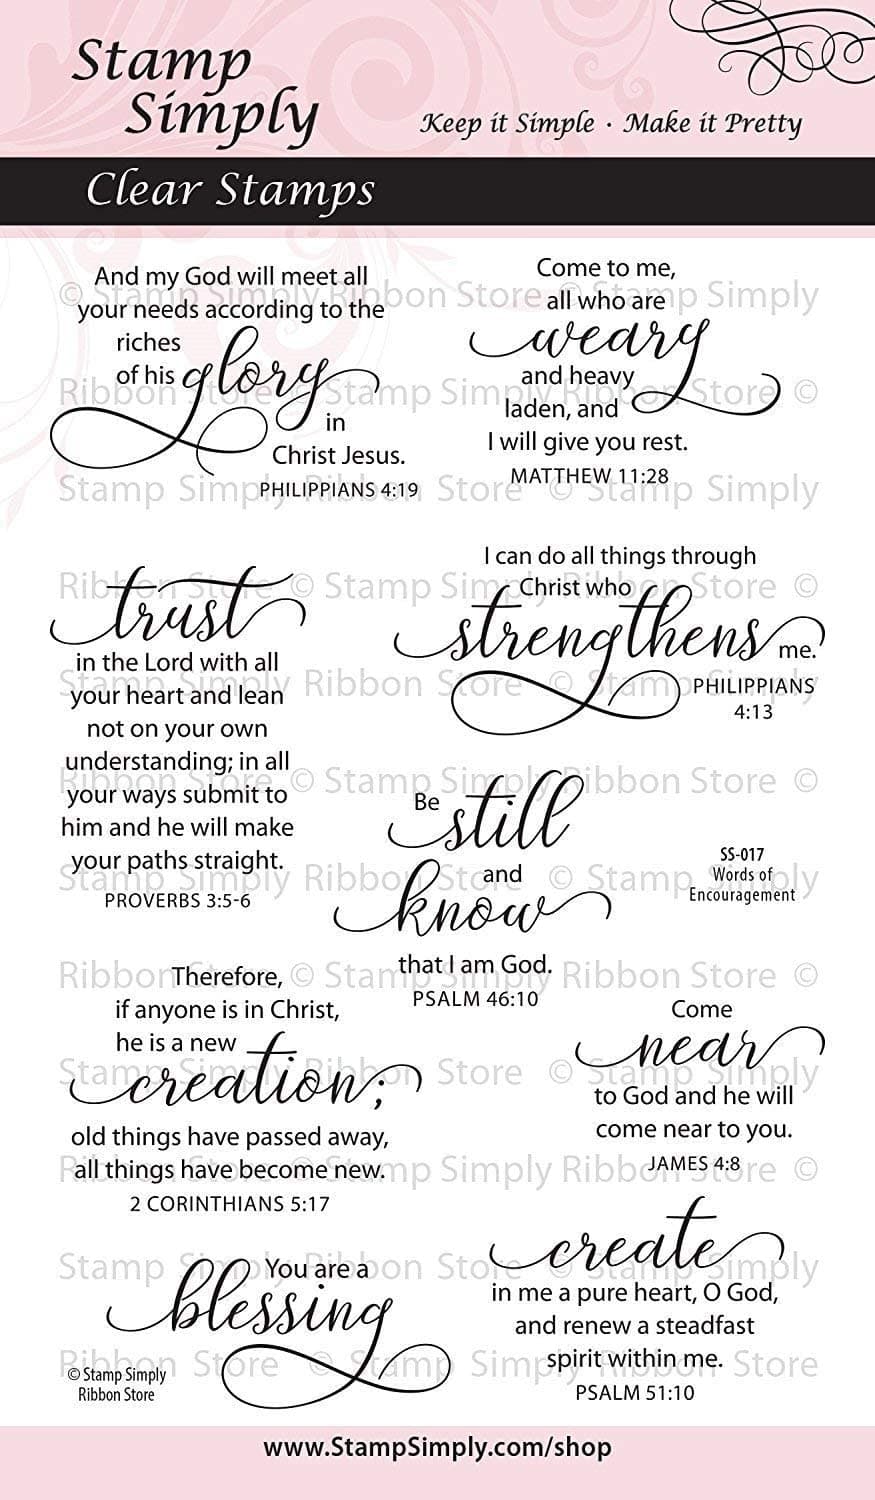 Stamp
Simply
Keep it Simple · Make it Pretty
Clear Stamps
And my God will meet all
your needs according to the
riches
of his glory
in
Christ Jesus.
PHILIPPIANS 4:19
Come to me,
all who are
weary
and heavy
laden, and
I will give you rest.
MATTHEW 11:28
trust
in the Lord with all
your heart and lean
not on your own
understanding; in all
your ways submit to
him and he will make
your paths straight.
PROVERBS 3:5-6
I can do all things through
Christ who
strengthens me.
PHILIPPIANS
4:13
Be still
and
know
that I am God.
PSALM 46:10
SS-017
Words of
Encouragement
Therefore,
if anyone is in Christ,
he is a new
creation;
old things have passed away,
all things have become new.
2 CORINTHIANS 5:17
Come
near
to God and he will
come near to you.
JAMES 4:8
You are a
blessing
create
in me a pure heart, O God,
and renew a steadfast
spirit within me.
PSALM 51:10
© Stamp Simply
Ribbon Store
www.StampSimply.com/shop
© Stamp Simply Ribbon Store © Stamp Simply
Ribbon Store © Stamp Simply Ribbon Store ©
Stamp Simply Ribbon Store © Stamp Simply
Ribbon Store © Stamp Simply Ribbon Store ©
Stamp Simply Ribbon Store © Stamp Simply
Ribbon Store © Stamp Simply Ribbon Store ©
Stamp Simply Ribbon Store © Stamp Simply
Ribbon Store © Stamp Simply Ribbon Store ©
Stamp Simply Ribbon Store © Stamp Simply
Ribbon Store © Stamp Simply Ribbon Store ©
Stamp Simply Ribbon Store © Stamp Simply
Ribbon Store © Stamp Simply Ribbon Store